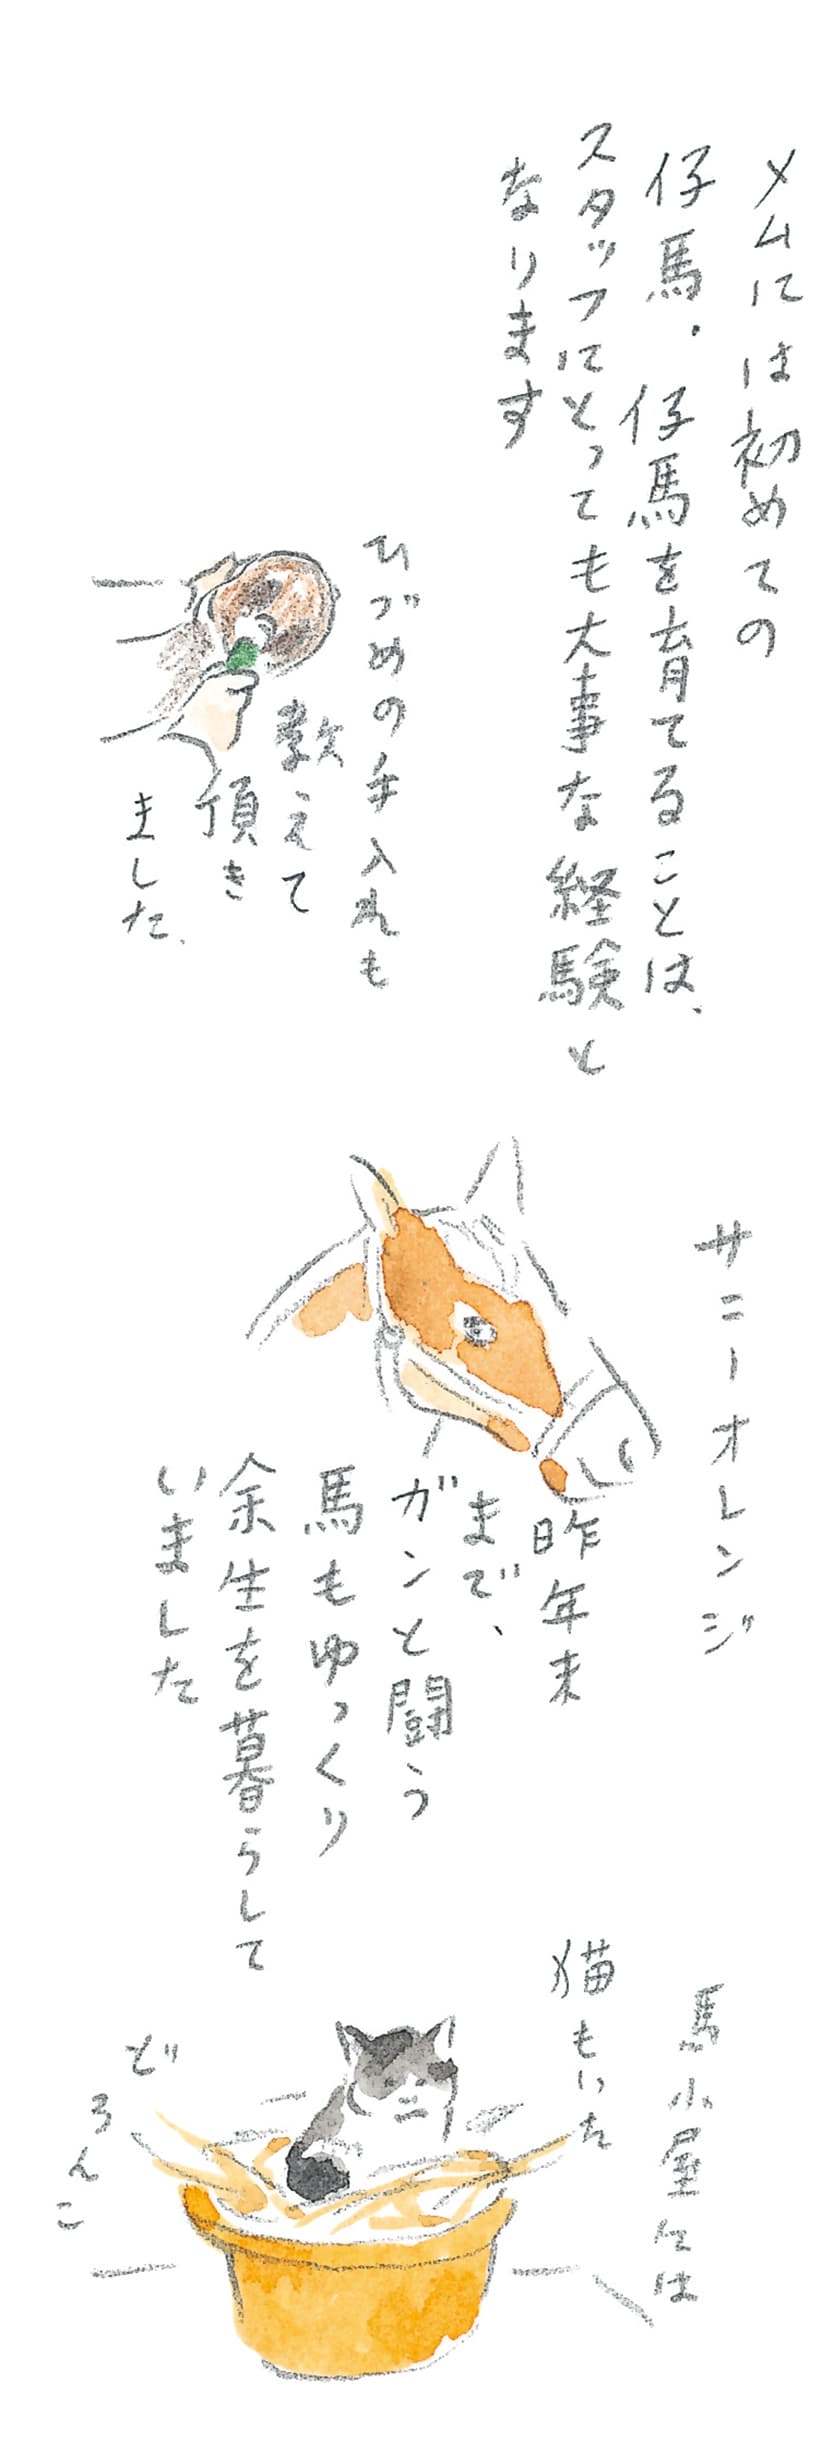 メムには初めての
仔馬．仔馬を育てることは、
スタッフにとっても大事な経験と
なります
ひづめの手入れも
教えて
頂き
ました、
サニーオレンジ
昨年末
まで、
ガンと闘う
馬もゆっくり
余生を暮らして
いました
馬小屋には
猫もいた
どろんこ